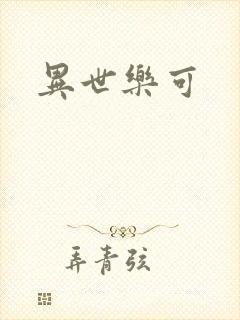 異世樂可
弄青弦